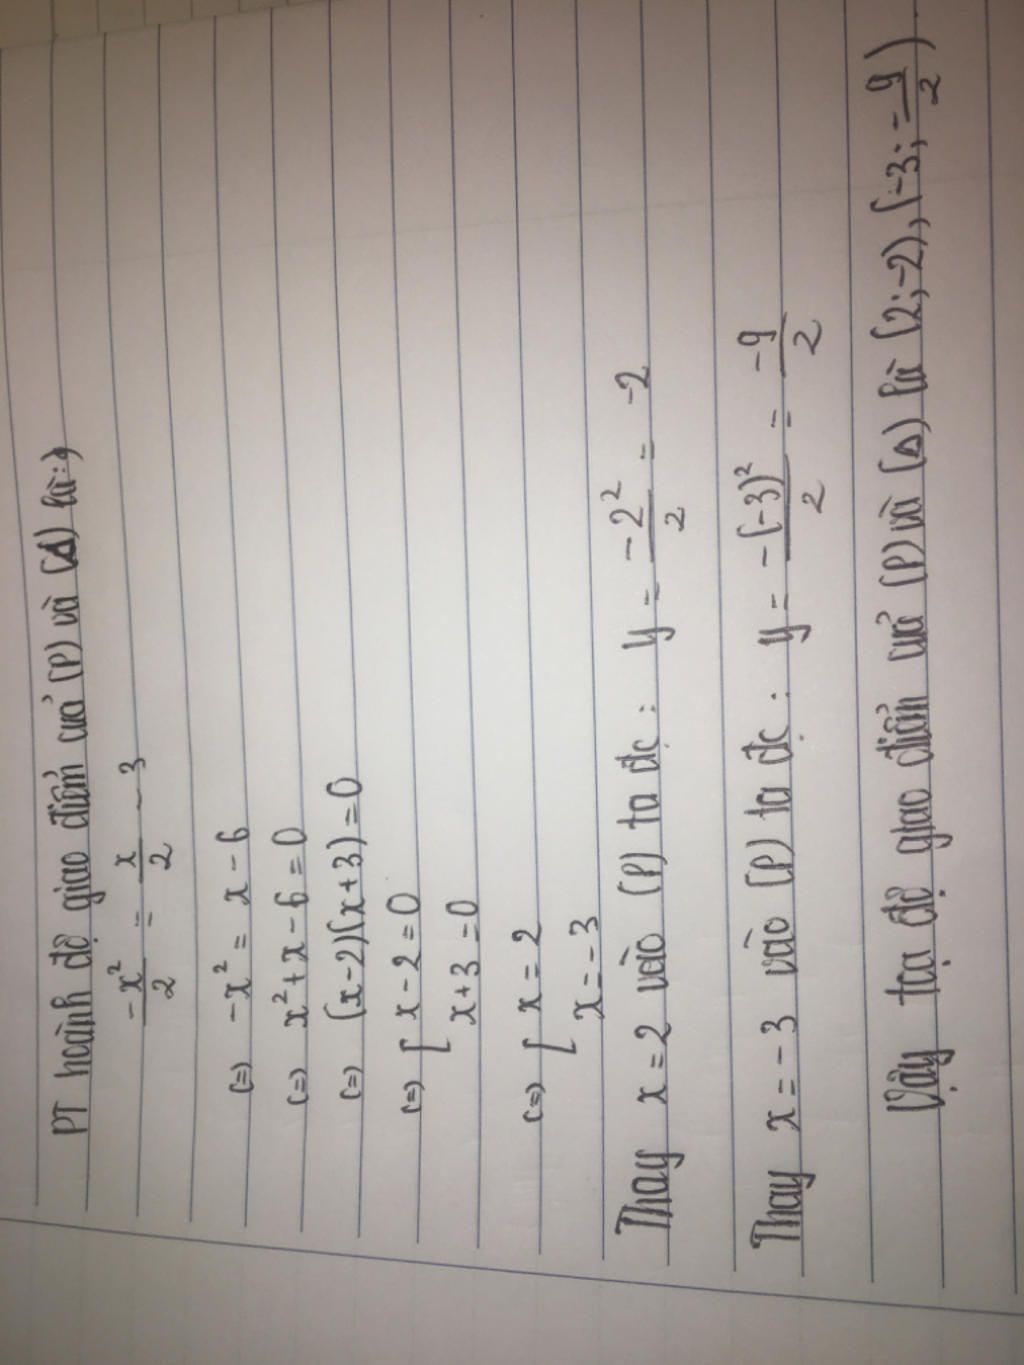 PT hoành độ giao điểm của (P) và (Δ) là:
-x²/2 = x/2 - 3
(=) -x² = x - 6
(=) x² + x - 6 = 0
(=) (x-2)(x+3) = 0
(=) [ x - 2 = 0
x + 3 = 0
(=) [ x = 2
x = -3
Thay x = 2 vào (P) ta đc: y = -2²/2 = -2
Thay x = -3 vào (P) ta đc: y = -(-3)²/2 = -9/2
Vậy tọa độ giao điểm của (P) và (Δ) là (2;-2), (-3; -9/2).